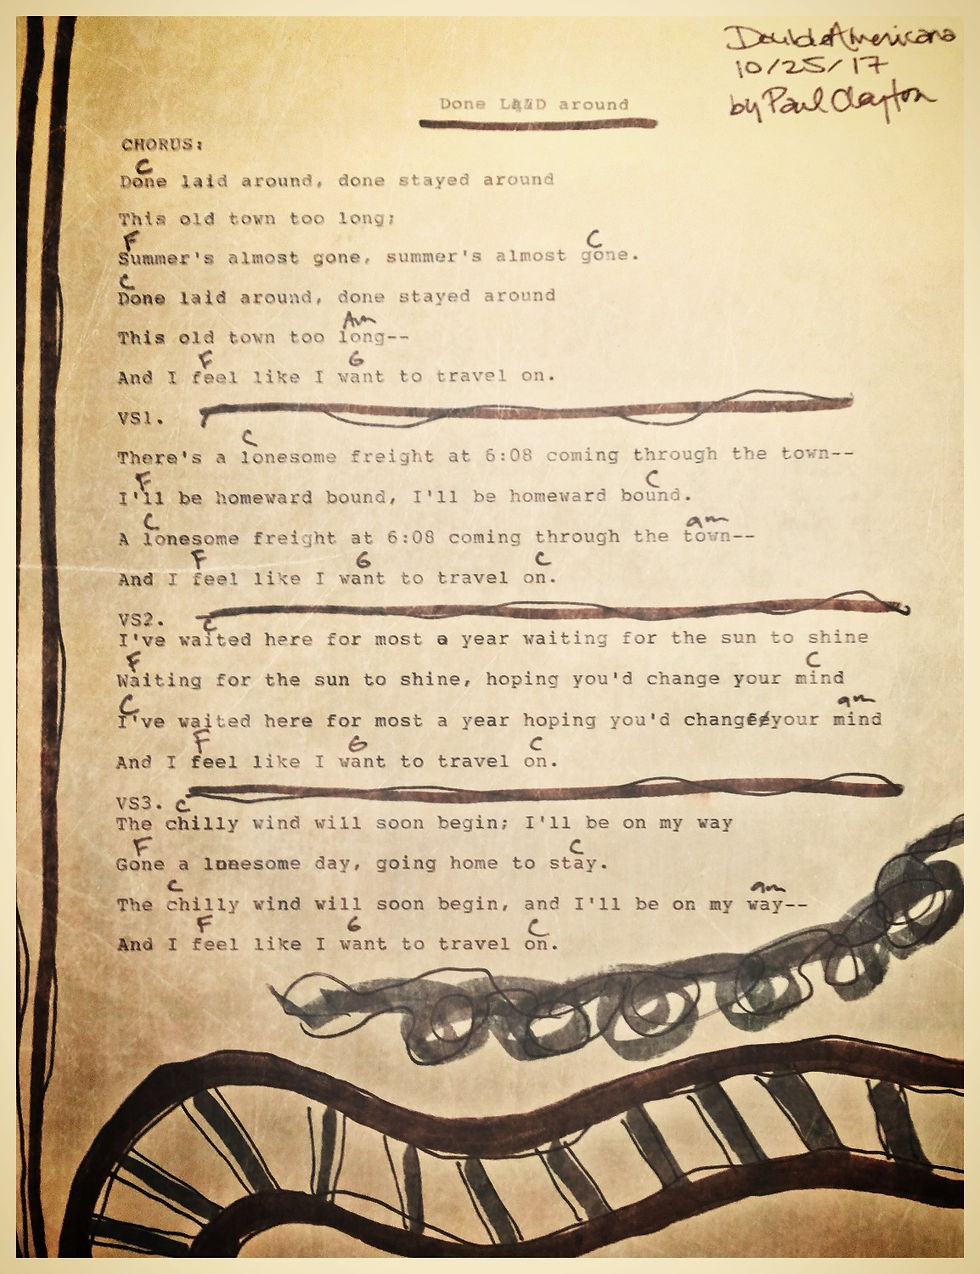 DoubleAmericana
10/25/17
by Paul Clayton
Done LAID around
CHORUS:
C
Done laid around, done stayed around
This old town too long;
F C
Summer's almost gone, summer's almost gone.
C
Done laid around, done stayed around
Am
This old town too long--
F G
And I feel like I want to travel on.
VS1.
C
There's a lonesome freight at 6:08 coming through the town--
F C
I'll be homeward bound, I'll be homeward bound.
C am
A lonesome freight at 6:08 coming through the town--
F G C
And I feel like I want to travel on.
VS2.
C
I've waited here for most a year waiting for the sun to shine
F C
Waiting for the sun to shine, hoping you'd change your mind
C am
I've waited here for most a year hoping you'd change your mind
F G C
And I feel like I want to travel on.
VS3. C
The chilly wind will soon begin; I'll be on my way
F C
Gone a lonesome day, going home to stay.
C am
The chilly wind will soon begin, and I'll be on my way--
F G C
And I feel like I want to travel on.